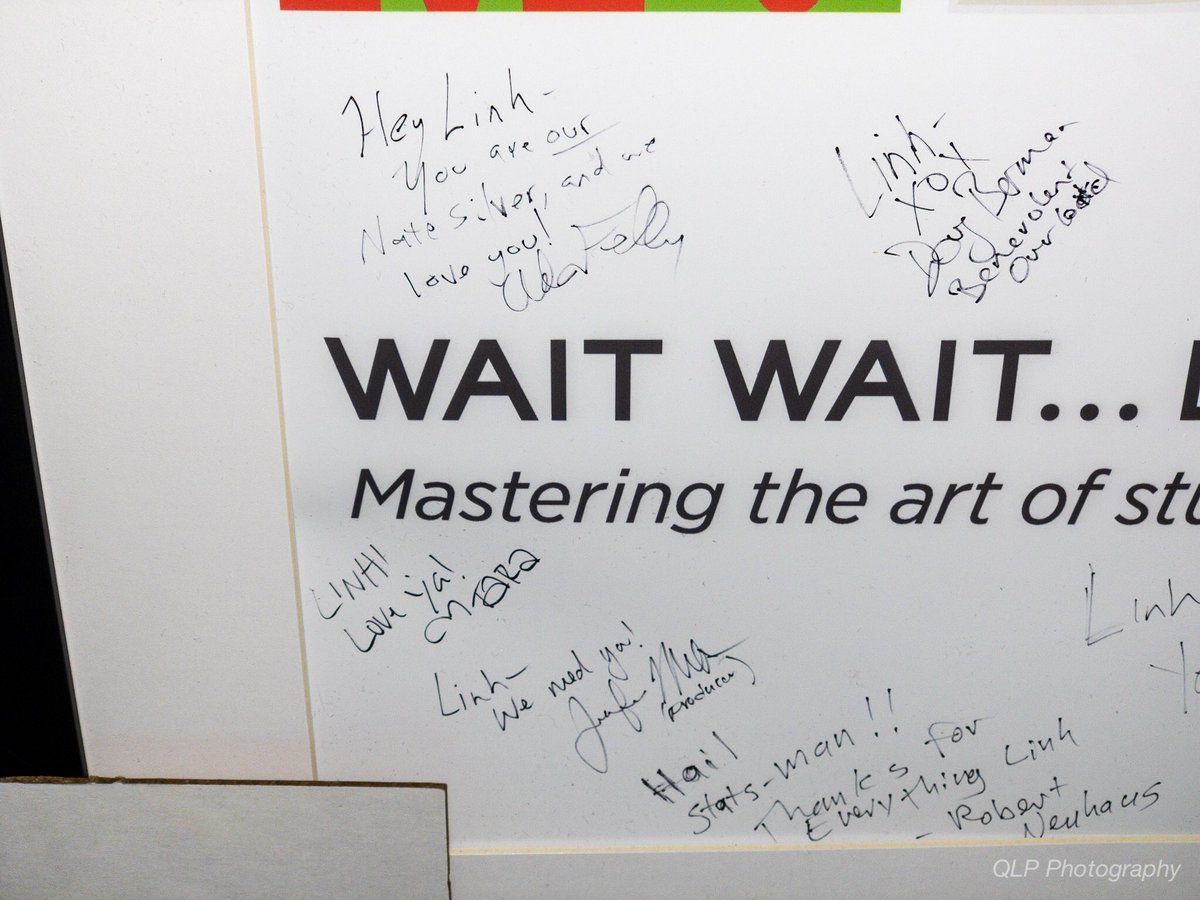 Hey Linh-
You are our
Nate Silver, and we
love you!
Linh-
XOX
Doug Berman
Benevolent
Overlord
WAIT WAIT...
Mastering the art of stu
LINH!
Love Ya!
Linh-
We need you!
(producer)
Hail
Stats-man!!
Thanks for
Everything Linh
- Robert
Neuhaus
Linh
QLP Photography